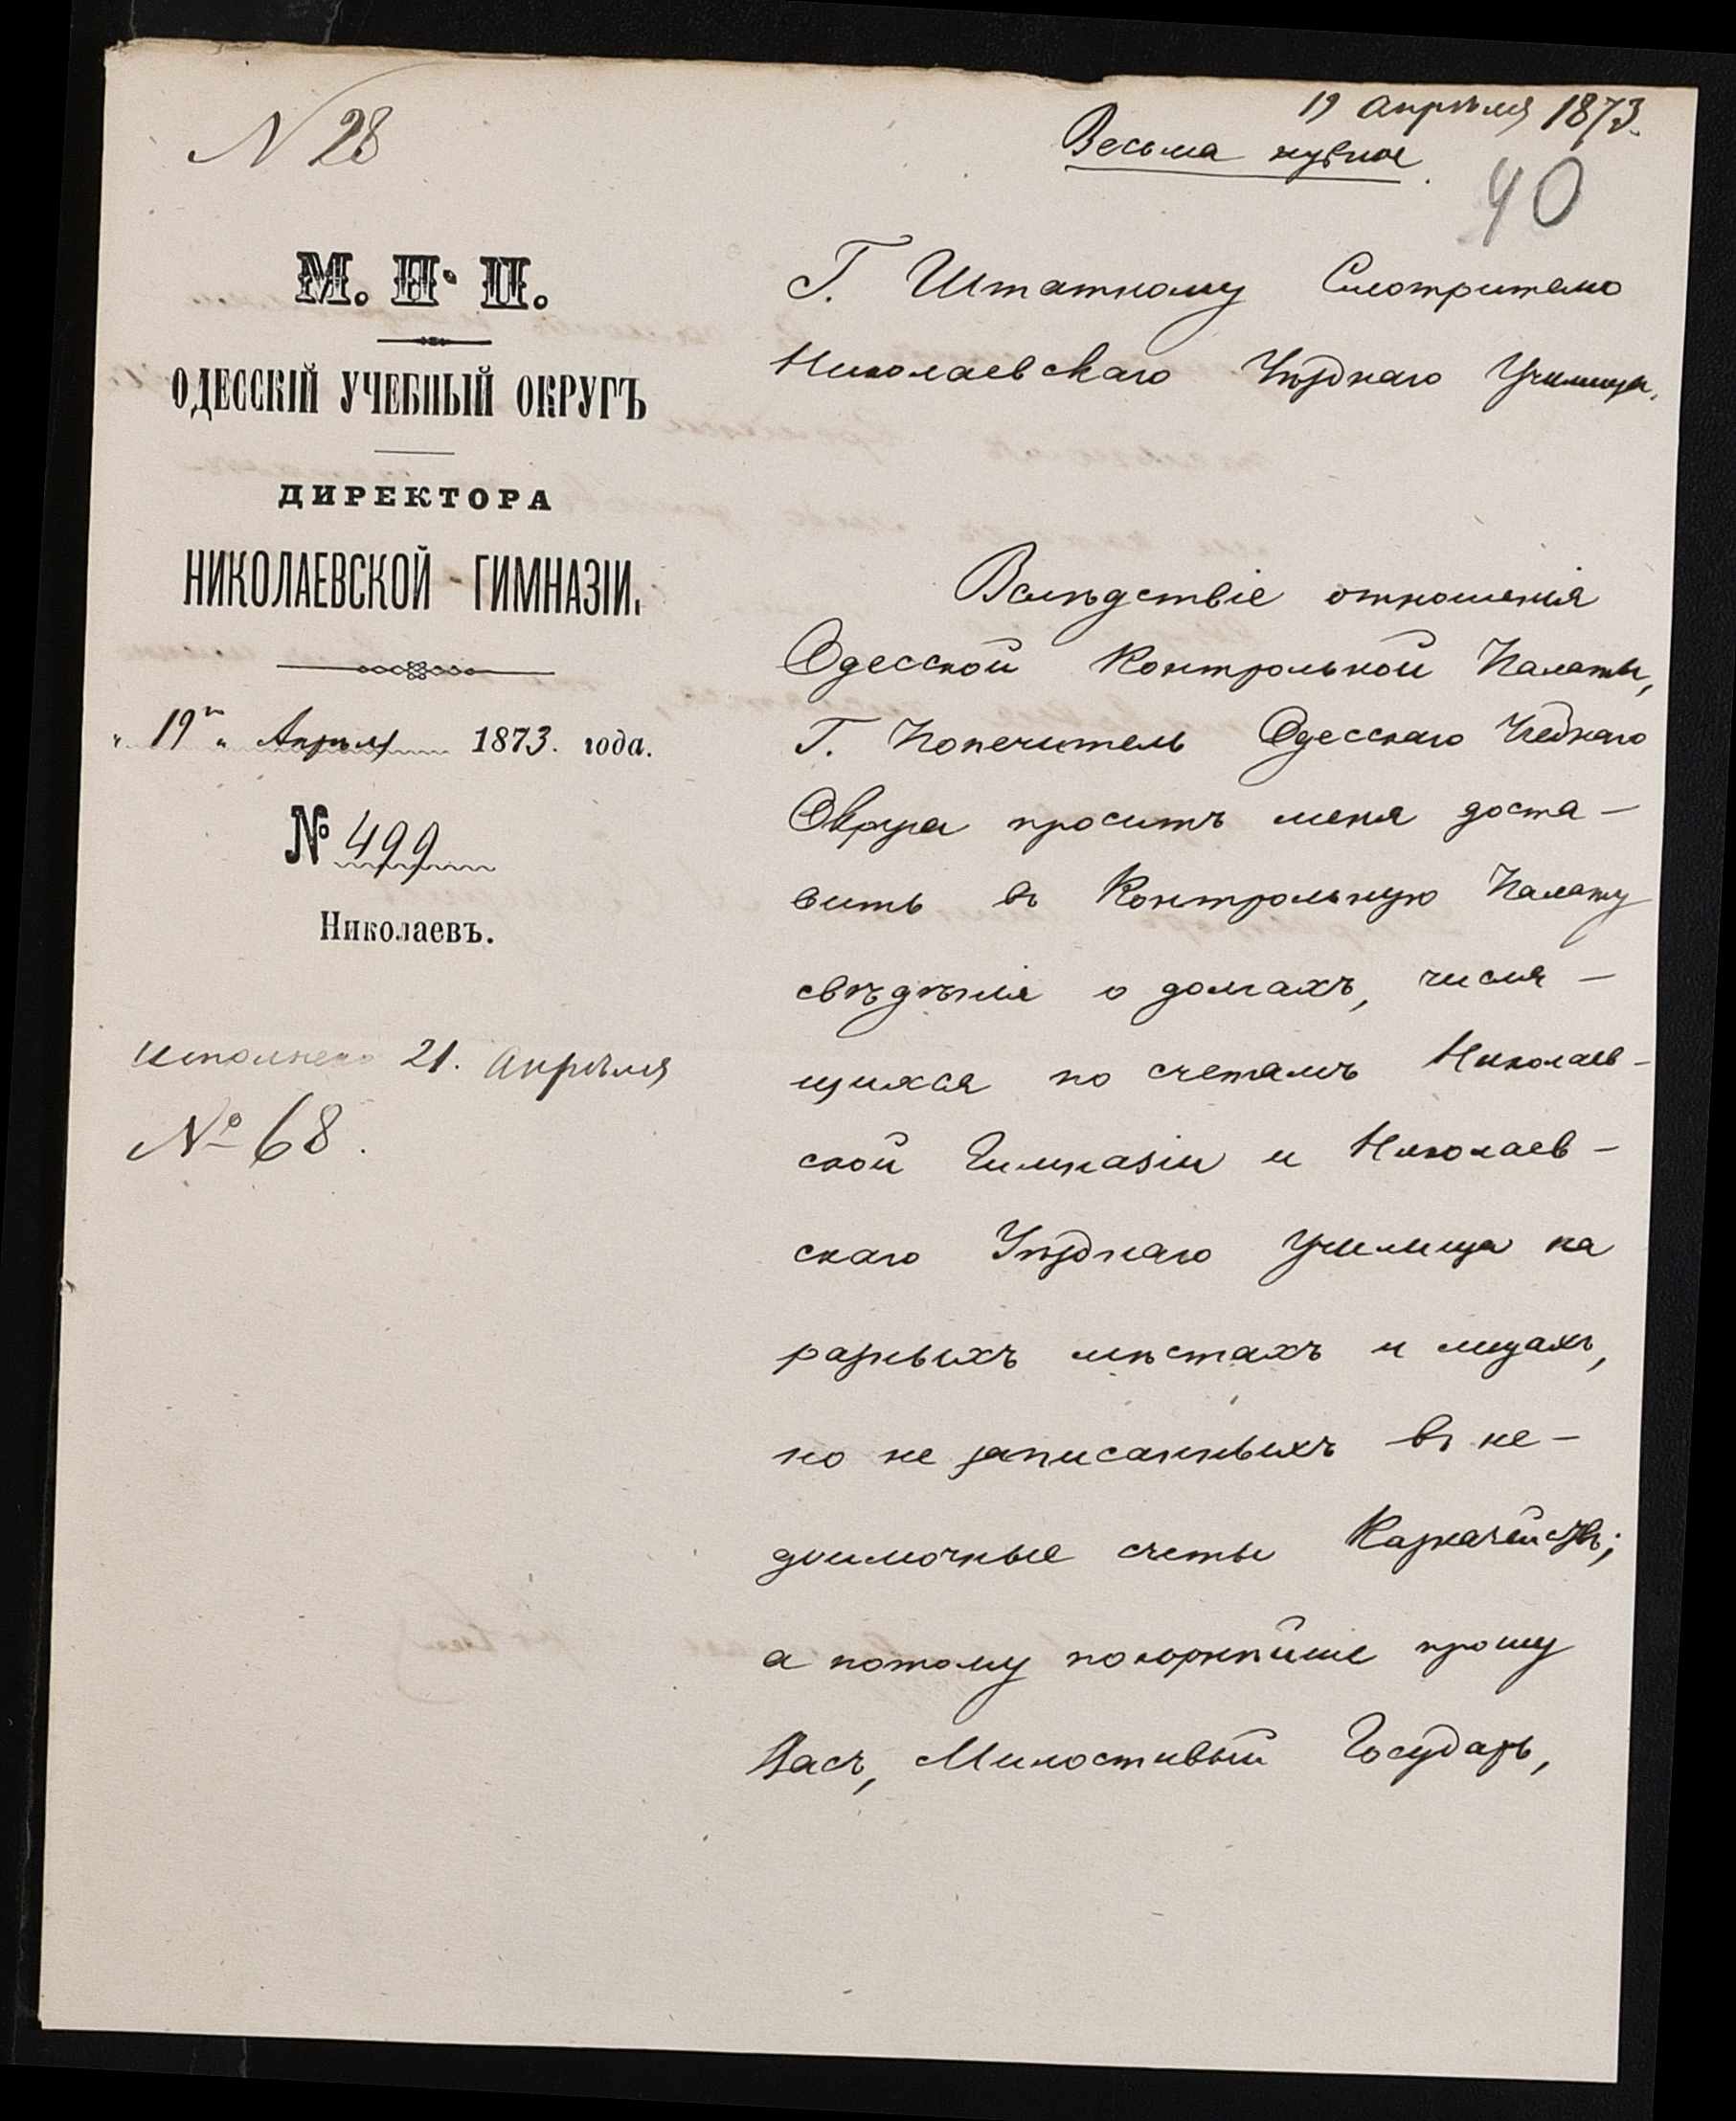 N 28
19 Апрѣля 1873.
Весьма нужное.
40
М. Н. П.
ОДЕССКІЙ УЧЕБНЫЙ ОКРУГЪ
ДИРЕКТОРА
НИКОЛАЕВСКОЙ ГИМНАЗІИ.
„ 19го „ Апрѣля 1873. года.
№ 499
Николаевъ.
исполнено 21. Апрѣля
№ 68.
Г. Штатному Смотрителю
Николаевскаго Уѣзднаго Училища.
Вслѣдствіе отношенія
Одесской Контрольной Палаты,
Г. Попечитель Одесскаго Учебнаго
Округа проситъ меня доста-
вить въ Контрольную Палату
свѣдѣнія о долгахъ, числя-
щихся по счетамъ Николаев-
ской Гимназіи и Николаев-
скаго Уѣзднаго Училища на
разныхъ мѣстахъ и лицахъ,
но не записанныхъ въ не-
доимочные счеты Казначействъ;
а потому покорнѣйше прошу
Васъ, Милостивый Государь,